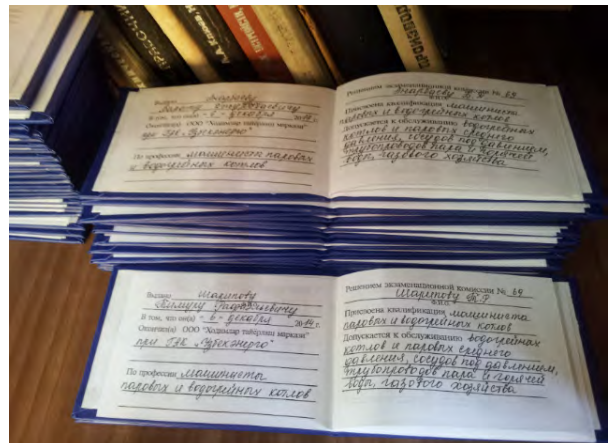 Выдано
В том, что он(а) - 6 - декабря
Окончил(а) ООО "Ходимлар тайёрлаш маркази"
при ГАК "Узбекэнерго"
По профессии машинисты паровых
и водогрейных котлов
Решением экзаменационной комиссии № 69
Ф.И.О.
Присвоена квалификация машиниста
паровых и водогрейных котлов
Допускается к обслуживанию водогрейных
котлов и паровых среднего
давления, сосудов под давлением,
трубопроводов пара и горячей
воды, газового хозяйства
Выдано Шарипову
В том, что он(а) - 6 - декабря г.
Окончил(а) ООО "Ходимлар тайёрлаш маркази"
при ГАК "Узбекэнерго"
По профессии машинисты
паровых и водогрейных котлов
Решением экзаменационной комиссии № 69
Шарипову Т.Р
Ф.И.О.
Присвоена квалификация машиниста
паровых и водогрейных котлов
Допускается к обслуживанию водогрейных
котлов и паровых среднего
давления, сосудов под давлением,
трубопроводов пара и горячей
воды, газового хозяйства